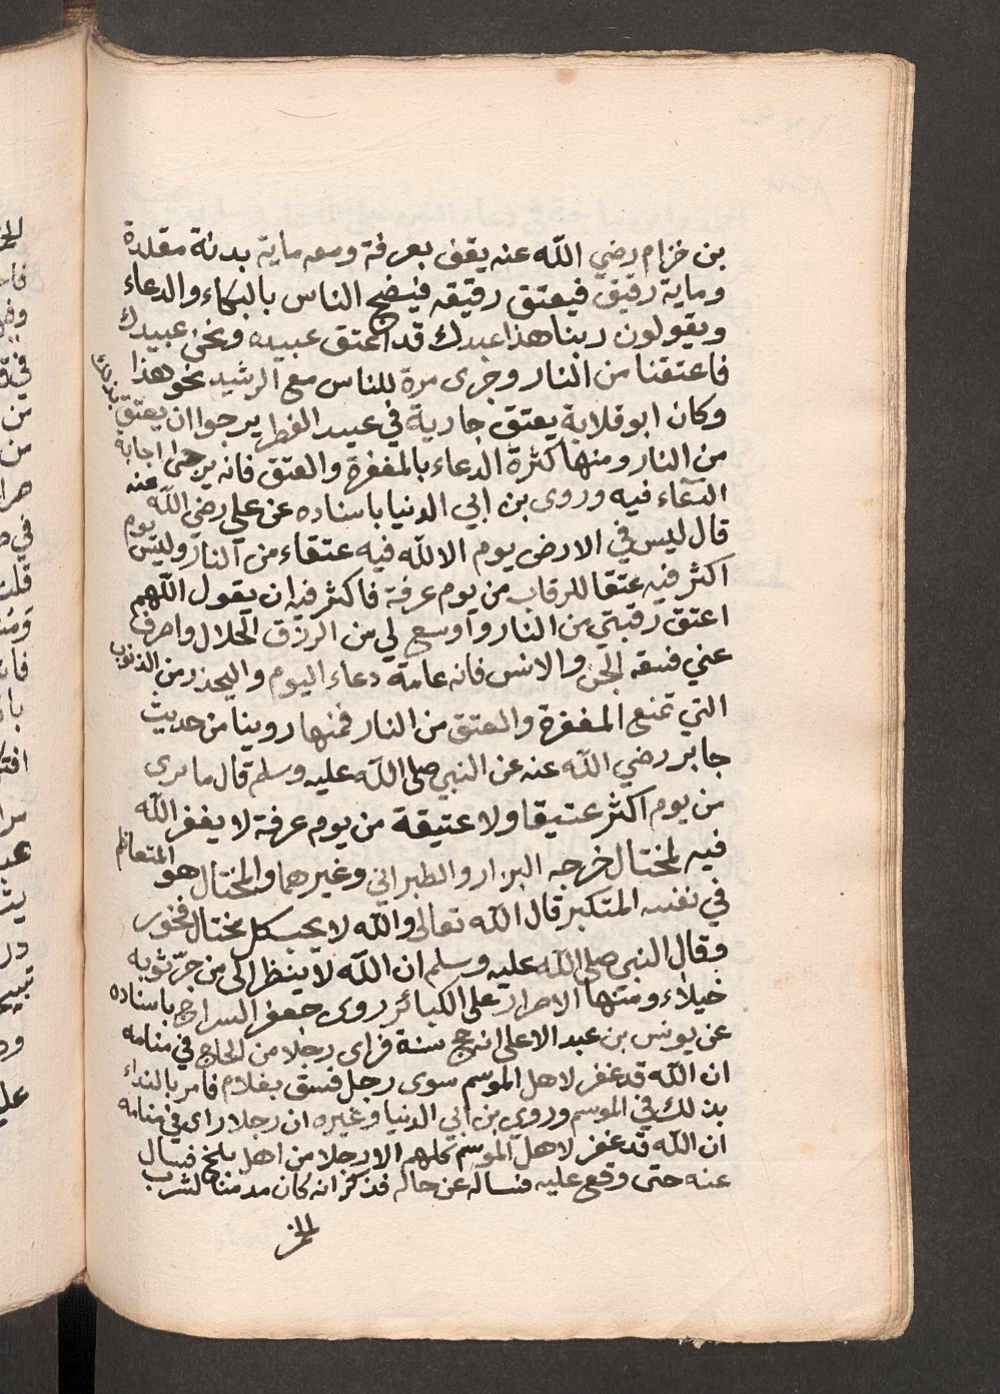 بن خزام رضي الله عنه يقف بعرفة ومعه ماية بدنة مقلدة
وماية رقيق فيعتق رقيقه فيضج الناس بالبكاء والدعاء
ويقولون ربنا هذا عبدك قد اعتق عبيده ونحن عبيدك
فاعتقنا من النار وجرى مرة للناس مع الرشيد نحو هذا
وكان ابو قلابة يعتق جارية في عيد الفطر يرجوا ان يعتق بذلك
من النار ومنها كثرة الدعاء بالمغفرة والعتق فانه يرجى اجابة
الدعاء فيه وروى بن ابي الدنيا باسناده عن علي رضي الله عنه
قال ليس في الارض يوم الا لله فيه عتقاء من النار وليس يوم
اكثر فيه عتقا للرقاب من يوم عرفة فاكثر فيه ان يقول اللهم
اعتق رقبتي من النار واوسع لي من الرزق الحلال واصرف
عني فسقه الجن والانس فانه عامة دعاء اليوم واليحذر من الذنوب
التي تمنع المغفرة والعتق من النار فمنها روينا من حديث
جابر رضي الله عنه عن النبي صلى الله عليه وسلم قال ما يرى
من يوم اكثر عتيقا ولا عتيقة من يوم عرفة لا يغفر الله
فيه لمختال خرجه البزار والطبراني وغيرهما والمختال هو المتعاظم
في نفسه المتكبر قال الله تعالى والله لا يحب كل مختال فخور
وقال النبي صلى الله عليه وسلم ان الله لا ينظر الى من جر ثوبه
خيلاء ومنها الاصرار على الكبائر روى جعفر السراج باسناده
عن يونس بن عبد الاعلى انه حج سنة فراى رجلا من الحاج في منامه
ان الله قد غفر لاهل الموسم سوى رجل فسق بغلام فامر بالنداء
بذلك في الموسم وروي بن ابي الدنيا وغيره ان رجلا راى في منامه
ان الله قد غفر لاهل الموسم كلهم الا رجلا من اهل بلخ فسال
عنه حتى وقع عليه فساله عن حاله فذكر انه كان مدمنا لشرب
الخمر